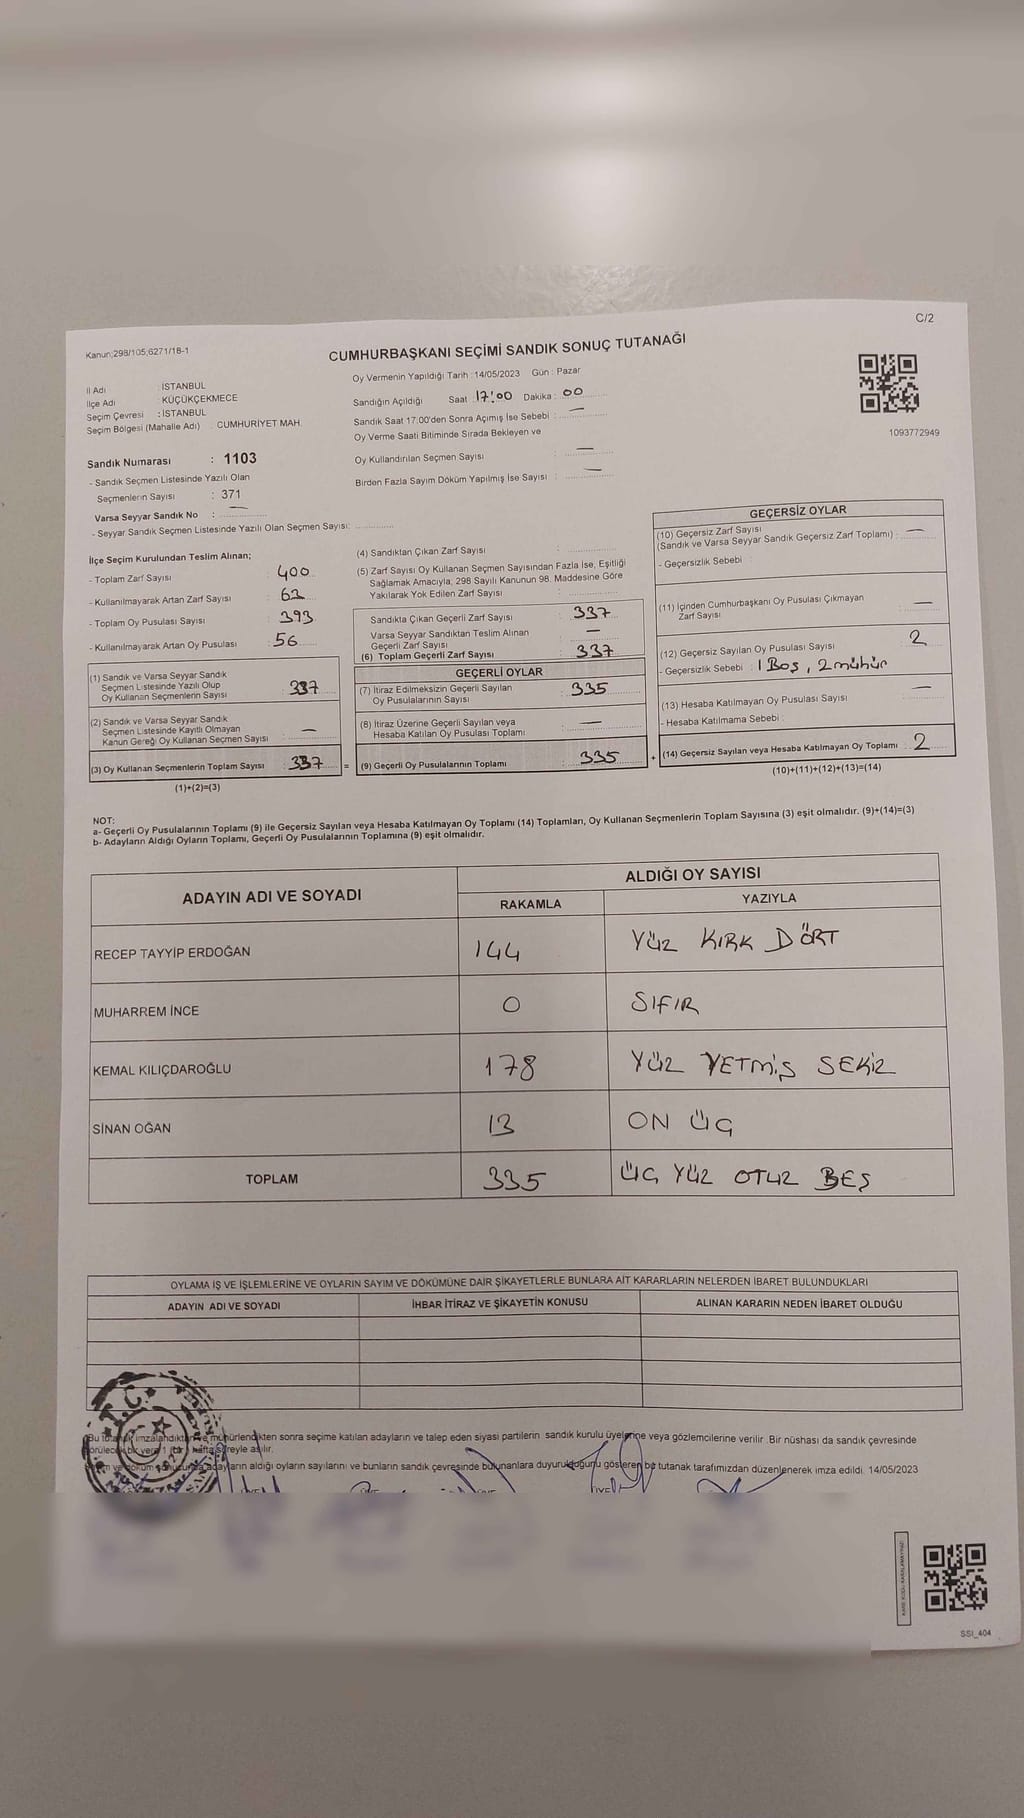 C/2
Kanun;298/105;6271/18-1
CUMHURBAŞKANI SEÇİMİ SANDIK SONUÇ TUTANAĞI
İl Adı : İSTANBUL
İlçe Adı : KÜÇÜKÇEKMECE
Seçim Çevresi : İSTANBUL
Seçim Bölgesi (Mahalle Adı) : CUMHURİYET MAH.
Oy Vermenin Yapıldığı Tarih : 14/05/2023 Gün : Pazar
Sandığın Açıldığı Saat : 17:00 Dakika : 00
Sandık Saat 17:00'den Sonra Açımış İse Sebebi : —
Oy Verme Saati Bitiminde Sırada Bekleyen ve
Oy Kullandırılan Seçmen Sayısı : —
Birden Fazla Sayım Döküm Yapılmış İse Sayısı : —
1093772949
Sandık Numarası : 1103
- Sandık Seçmen Listesinde Yazılı Olan
Seçmenlerin Sayısı : 371
Varsa Seyyar Sandık No : —
- Seyyar Sandık Seçmen Listesinde Yazılı Olan Seçmen Sayısı:
İlçe Seçim Kurulundan Teslim Alınan;
- Toplam Zarf Sayısı : 400
- Kullanılmayarak Artan Zarf Sayısı : 63
- Toplam Oy Pusulası Sayısı : 393
- Kullanılmayarak Artan Oy Pusulası : 56
(1) Sandık ve Varsa Seyyar Sandık
Seçmen Listesinde Yazılı Olup
Oy Kullanan Seçmenlerin Sayısı : 337
(2) Sandık ve Varsa Seyyar Sandık
Seçmen Listesinde Kayıtlı Olmayan
Kanun Gereği Oy Kullanan Seçmen Sayısı : —
(3) Oy Kullanan Seçmenlerin Toplam Sayısı : 337 =
(1)+(2)=(3)
(4) Sandıktan Çıkan Zarf Sayısı :
(5) Zarf Sayısı Oy Kullanan Seçmen Sayısından Fazla İse, Eşitliği
Sağlamak Amacıyla, 298 Sayılı Kanunun 98. Maddesine Göre
Yakılarak Yok Edilen Zarf Sayısı :
Sandıkta Çıkan Geçerli Zarf Sayısı : 337
Varsa Seyyar Sandıktan Teslim Alınan
Geçerli Zarf Sayısı : —
(6) Toplam Geçerli Zarf Sayısı : 337
GEÇERLİ OYLAR
(7) İtiraz Edilmeksizin Geçerli Sayılan
Oy Pusulalarının Sayısı : 335
(8) İtiraz Üzerine Geçerli Sayılan veya
Hesaba Katılan Oy Pusulası Toplamı : —
(9) Geçerli Oy Pusulalarının Toplamı : 335 +
GEÇERSİZ OYLAR
(10) Geçersiz Zarf Sayısı
(Sandık ve Varsa Seyyar Sandık Geçersiz Zarf Toplamı) : —
- Geçersizlik Sebebi :
(11) İçinden Cumhurbaşkanı Oy Pusulası Çıkmayan
Zarf Sayısı : —
(12) Geçersiz Sayılan Oy Pusulası Sayısı : 2
- Geçersizlik Sebebi : 1 Boş, 2 mühür
(13) Hesaba Katılmayan Oy Pusulası Sayısı : —
- Hesaba Katılmama Sebebi :
(14) Geçersiz Sayılan veya Hesaba Katılmayan Oy Toplamı : 2
(10)+(11)+(12)+(13)=(14)
NOT:
a- Geçerli Oy Pusulalarının Toplamı (9) ile Geçersiz Sayılan veya Hesaba Katılmayan Oy Toplamı (14) Toplamları, Oy Kullanan Seçmenlerin Toplam Sayısına (3) eşit olmalıdır. (9)+(14)=(3)
b- Adayların Aldığı Oyların Toplamı, Geçerli Oy Pusulalarının Toplamına (9) eşit olmalıdır.
ADAYIN ADI VE SOYADI
ALDIĞI OY SAYISI
RAKAMLA YAZIYLA
RECEP TAYYİP ERDOĞAN 144 YÜZ KIRK DÖRT
MUHARREM İNCE 0 SIFIR
KEMAL KILIÇDAROĞLU 178 YÜZ YETMİŞ SEKİZ
SİNAN OĞAN 13 ON ÜÇ
TOPLAM 335 ÜÇ YÜZ OTUZ BEŞ
OYLAMA İŞ VE İŞLEMLERİNE VE OYLARIN SAYIM VE DÖKÜMÜNE DAİR ŞİKAYETLERLE BUNLARA AİT KARARLARIN NELERDEN İBARET BULUNDUKLARI
ADAYIN ADI VE SOYADI İHBAR İTİRAZ VE ŞİKAYETİN KONUSU ALINAN KARARIN NEDEN İBARET OLDUĞU
T.C.
Bu imzalandıktan ve mühürlendikten sonra seçime katılan adayların ve talep eden siyasi partilerin sandık kurulu üyelerine veya gözlemcilerine verilir. Bir nüshası da sandık çevresinde
görülecek bir yere 1 (bir) hafta süreyle asılır.
adayların aldığı oyların sayılarını ve bunların sandık çevresinde bulunanlara duyurulduğunu gösteren bu tutanak tarafımızdan düzenlenerek imza edildi. 14/05/2023
SSI_404